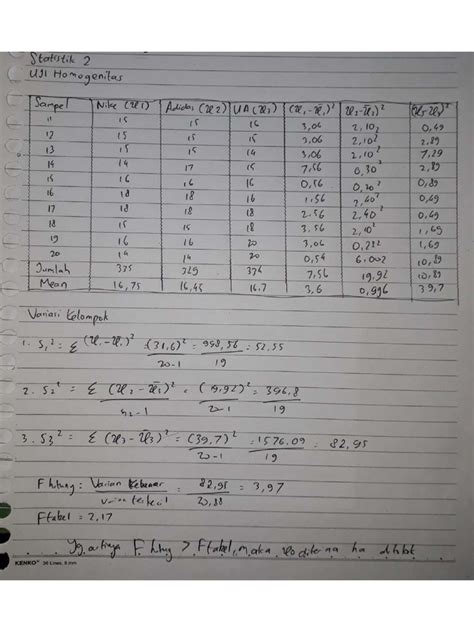 Statistik 2
UJI Homogenitas
Sampel Nike (x1) Adidas (x2) UA (x3) (x1-x̄1)² (x2-x̄2)² (x3-x̄3)²
11 15 15 16 3,06 2,10² 0,49
12 15 15 15 3,06 2,10² 2,89
13 15 15 14 3,06 2,10² 7,29
14 14 17 15 7,56 0,30² 2,89
15 16 16 16 0,56 0,20² 0,89
16 18 18 16 1,56 2,40² 0,49
17 18 18 18 2.56 2,40² 0,69
18 15 15 18 3.56 2,10² 1,69
19 16 16 20 3,06 0,222 1,69
20 14 14 20 0,54 6.002 10,89
Jumlah 335 329 334 7,56 19,92 10,89
Mean 16,75 16,45 16.7 3,6 0,996 39,7
Variasi Kelompok
1. S1² = Σ (x1-x̄1)² = (31,6)² = 998,56 = 52,55
20-1 19
2. S2² = Σ (x2-x̄2)² = (19,92)² = 396,8
n2-1 20-1 19
3. S3² = Σ (x3-x̄3)² = (39,7)² = 1576.09 = 82,95
20-1 19
F hitung: Varian terbesar = 82,95 = 3,97
varian terkecil 20,88
F tabel = 2,17
Yg artinya F hitung > F tabel, maka Ho diterima ha ditolak
KENKO® 36 Lines, 8 mm